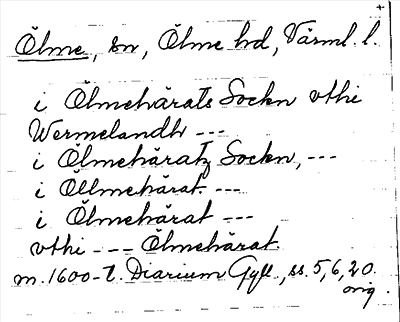 Ölme, sn, Ölme hd, Värml. l.
i Ölmehärats Sockn vthi
Wermelandh ---
i Ölmehäratz Sockn, ---
i Öllmehärat. ---
i Ölmehärat ---
vthi --- Ölmehärat.
m. 1600-t. Diarium Gyll., ss. 5, 6, 20.
orig.